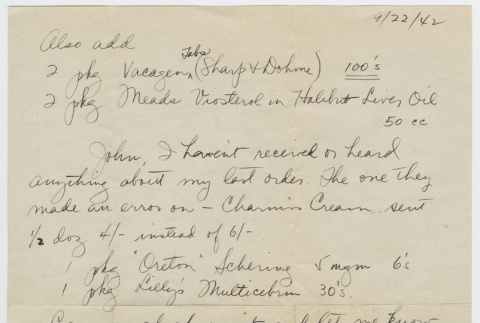 9/22/42
Also add
2 pkg Vacagen Tabs (Sharp & Dohme) 100's
2 pkg Meads Viosterol in Halibut Liver Oil
50 cc
John, I havent received or heard
anything about my last order. The one they
made an error on – Charmis Cream sent
1/2 doz 4/- instead of 6/-
1 pkg "Oreton" Schering 5 mgm 6's
1 pkg Lilly's Multicebrin 30's.
let me know